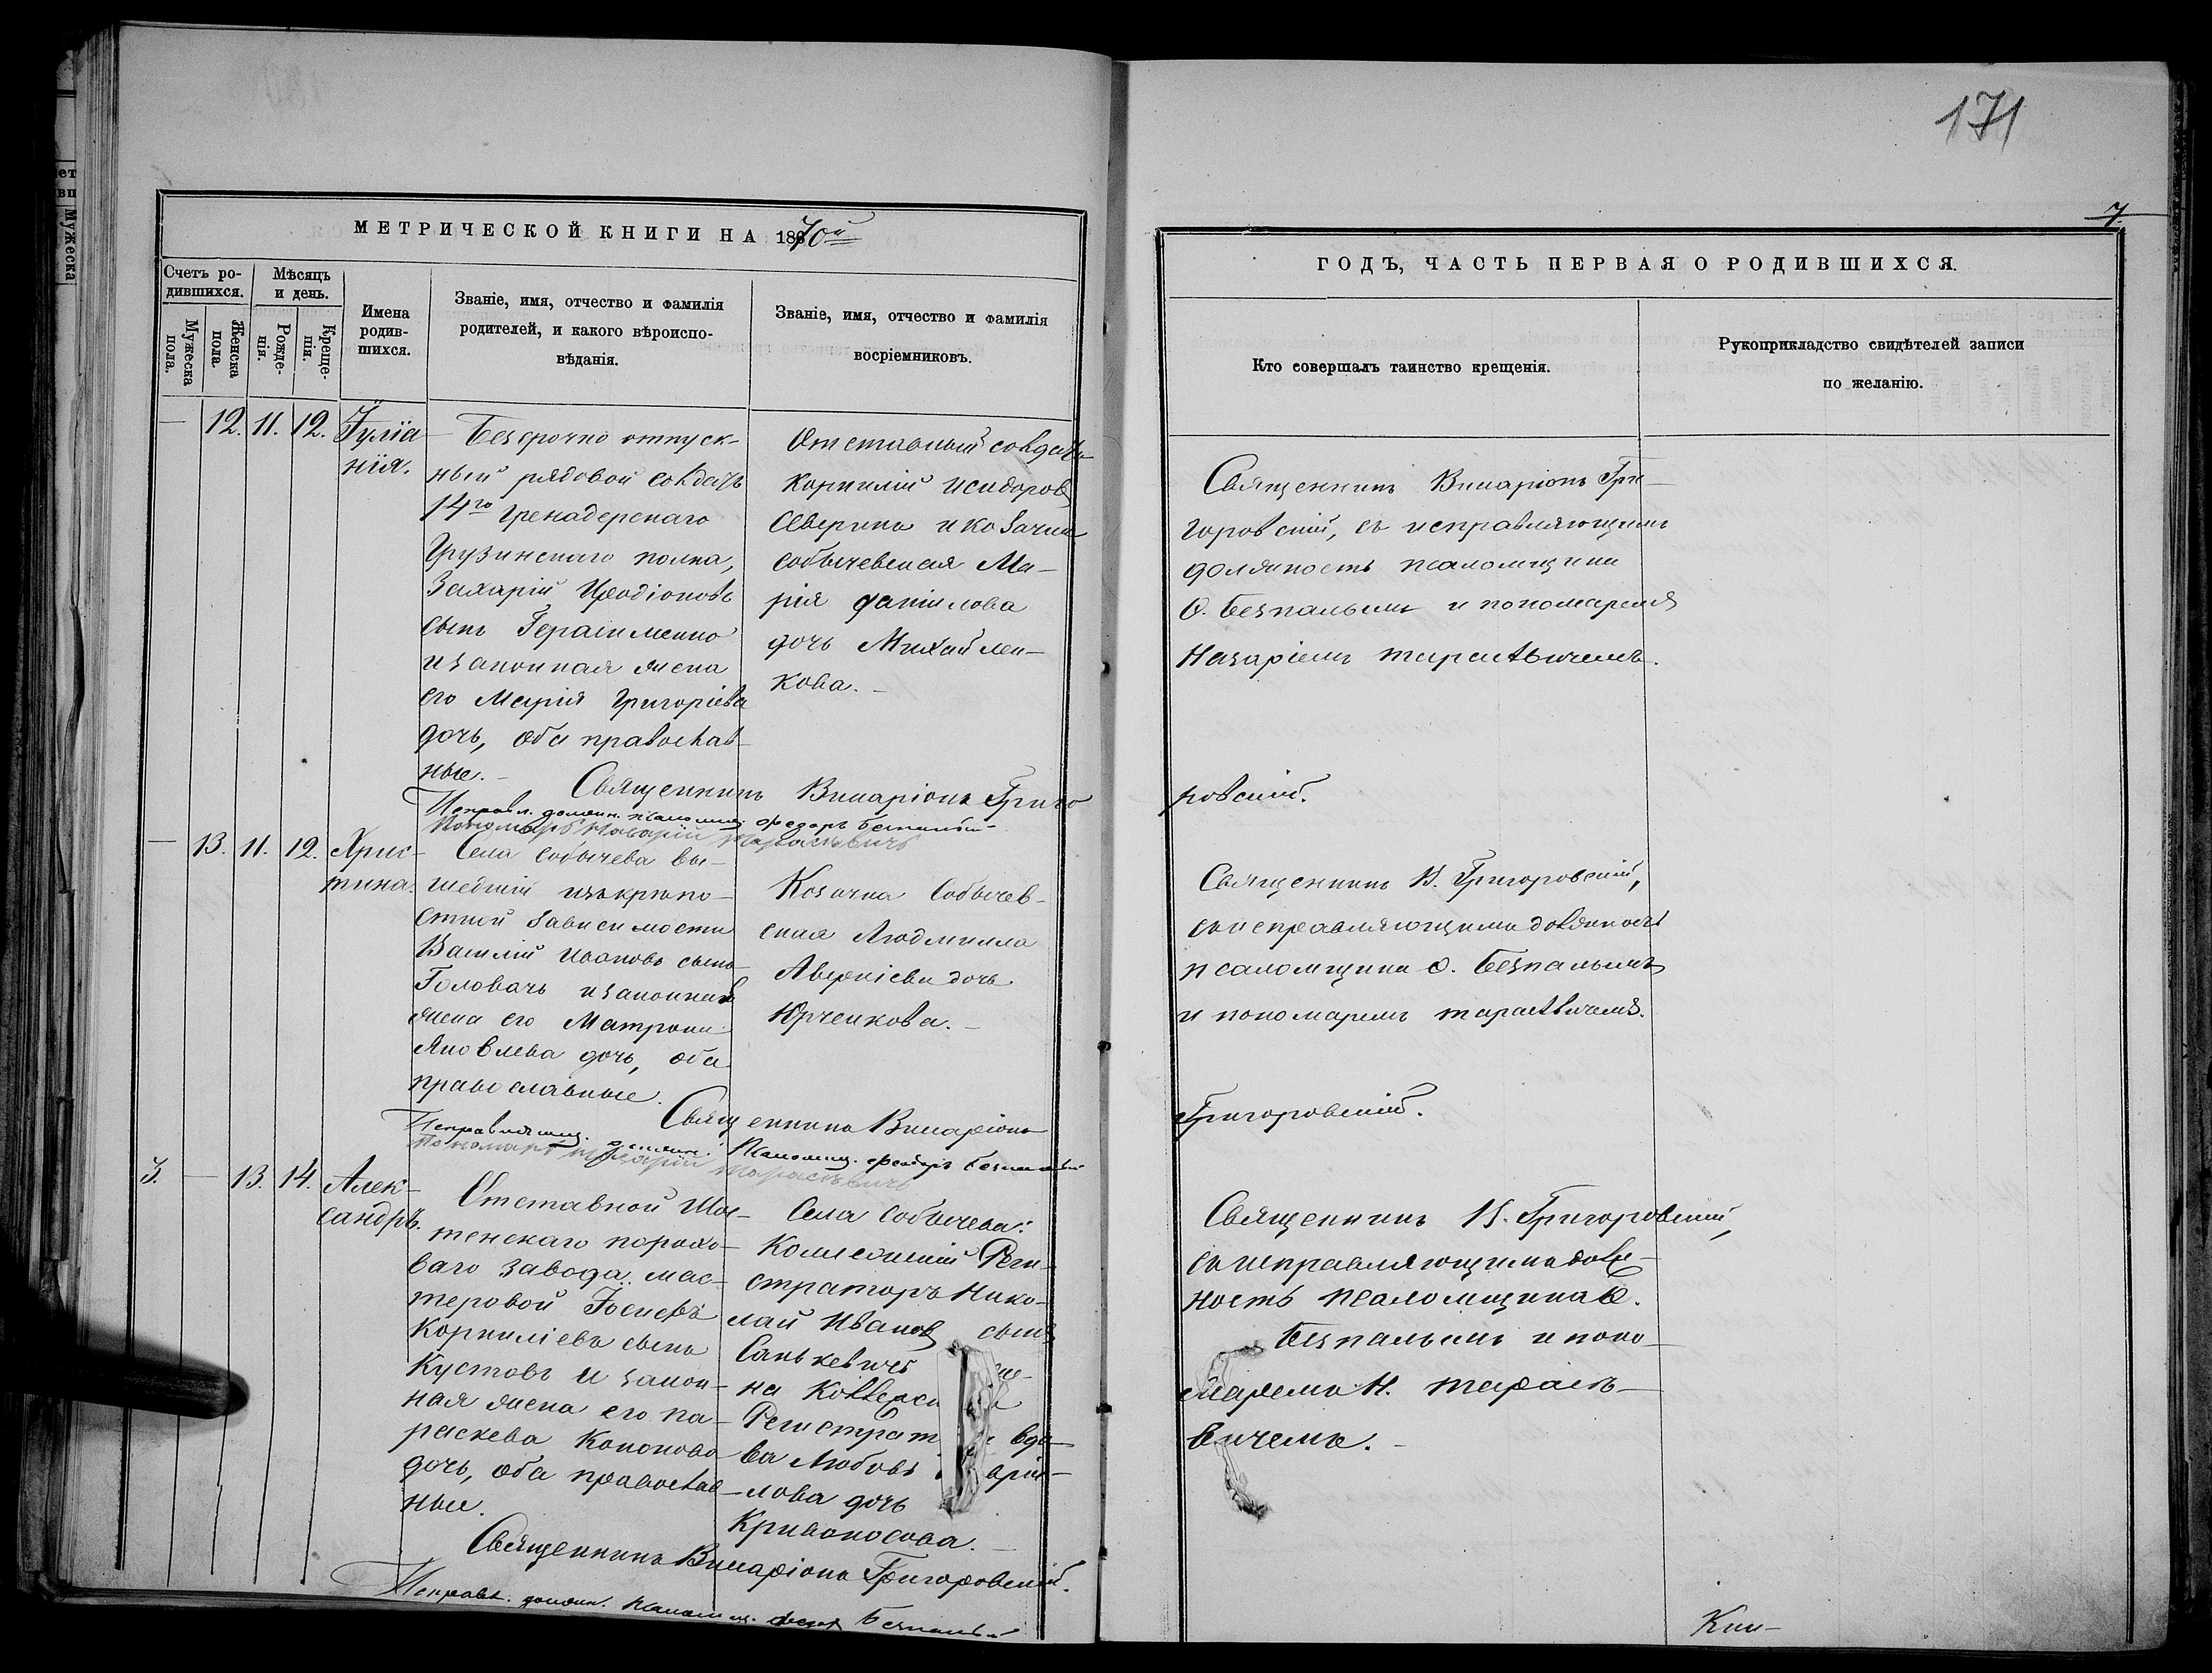 171
7.
МЕТРИЧЕСКОЙ КНИГИ НА 1870й
Счетъ ро-
дившихся.
Мѣсяцъ
и день.
Мужеска
пола.
Женска
пола.
Рожде-
нія.
Креще-
нія.
Имена
родив-
шихся.
Званіе, имя, отчество и фамилія
родителей, и какого вѣроиспо-
вѣданія.
Званіе, имя, отчество и фамилія
воспріемниковъ.
ГОДЪ, ЧАСТЬ ПЕРВАЯ О РОДИВШИХСЯ.
Кто совершалъ таинство крещенія.
Рукоприкладство свидѣтелей записи
по желанію.
— 12. 11. 12.
Іуліа-
нія.
Безсрочно отпуск-
ный рядовой солдатъ
14го Гренадерскаго
Грузинскаго полка,
Захарій Иродіоновъ
сынъ Герасименко
и законная жена
его Марія Григоріева
дочь, оба православ-
ные.
Отставный солдатъ
Корнилій Исидоровъ
Северинъ и козачка
собычевская Ма-
рія Даніилова
дочь Михайлен-
кова.
Священникъ Виларіонъ Гри-
горовскій, съ исправляющимъ
должность псаломщика
Ѳ. Безпалымъ и пономаремъ
Назаріемъ Тарасѣвичемъ.
Священникъ Виларіонъ Григо
ровскій.
Исправл. должн. псаломщ. Федоръ Безпалый
Пономарь Назарій Тарасѣвичъ
— 13. 11. 12.
Хрис-
тина.
Села Собычева вы-
шедшій изъ крѣпо-
стной зависимости
Василій Ивановъ сынъ
Головачъ и законная
жена его Матрона
Яковлева дочь, оба
православные.
Козачка Собычев-
ская Людмилла
Аверкіева дочь
Юрченкова.
Священникъ И. Григоровскій,
съ исправляющимъ должность
псаломщика Ѳ. Безпалымъ
и пономаремъ Тарасѣвичемъ.
Священникъ Виларіонъ
Григоровскій.
Исправляющ. должн. Псаломщ. Феодоръ Безпалый
Пономарь Назарій Тарасѣвичъ
3. — 13. 14.
Алек-
сандръ.
Отставной Шос-
тенскаго порохо-
ваго завода мас-
теровой Іосифъ
Корниліевъ сынъ
Кустовъ и закон-
ная жена его Па-
раскева Кононова
дочь, оба православ-
ные.
Села Собычева:
Коллежскій Реги-
страторъ Нико-
лай Ивановъ сынъ
Санькевичъ
на Коллежск
Регистрат вдо-
ва Любовь
лова дочь
Кривоносова.
Священникъ И. Григоровскій,
съ исправляющимъ долж-
ность псаломщика Ѳ.
Безпалымъ и поно-
маремъ Н. Тарасѣ-
вичемъ.
Священникъ Виларіонъ Григоровскій.
Исправл. должн. Псаломщ. Федоръ Безпалый